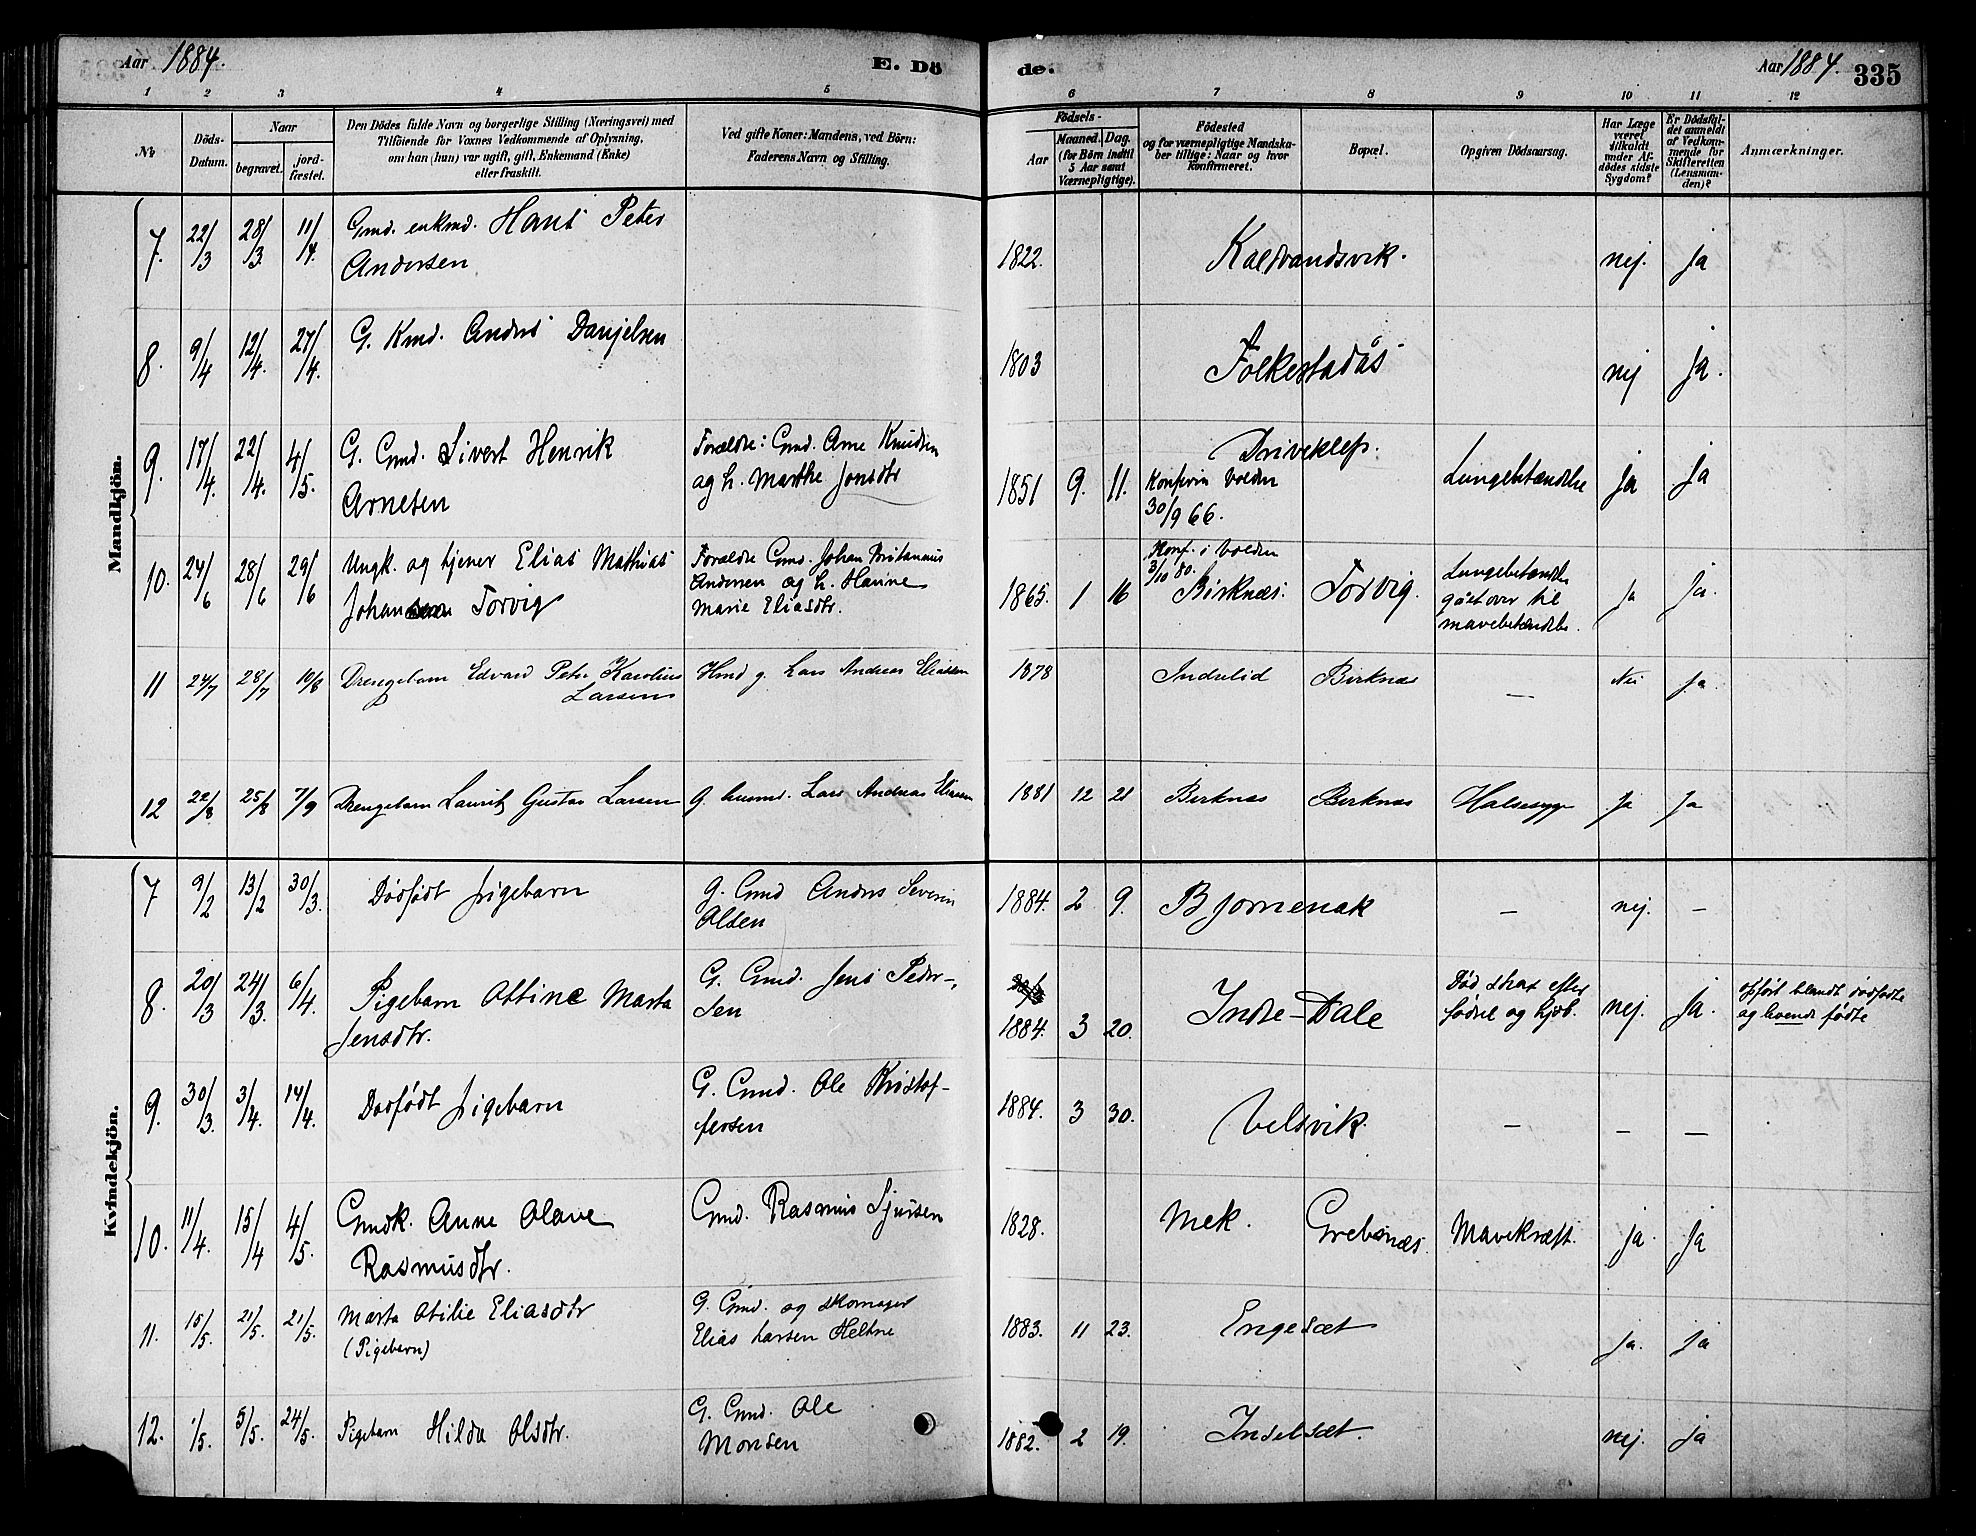 Aar 1884. E. Dö de. Aar 1884. 335
1 2 3 4 5 6 7 8 9 10 11 12
No
Döds-Datum.
Naar
begravet.
jord-fæstet.
Den Dödes fulde Navn og borgerlige Stilling (Næringsvei) med
Tilföiende for Voxnes Vedkommende af Oplysning,
om han (hun) var ugift, gift, Enkemand (Enke)
eller fraskilt.
Ved gifte Koner: Mandens, ved Börn:
Faderens Navn og Stilling.
Födsels-
Aar
Maaned. Dag.
(for Börn indtil
5 Aar samt
Værnepligtige).
Födested
og for værnepligtige Mandska-
ber tillige: Naar og hvor
konfirmeret.
Bopæl.
Opgiven Dödsaarsag.
Har Læge
været
tilkaldt
under Af-
dödes sidste
Sygdom?
Er Dödsfal-
det anmeldt
af Vedkom-
mende for
Skifteretten
(Lensman-
den)?
Anmærkninger.
Mandkjön.
7. 22/3 28/3 11/4. Gmd. enkmd. Hans Peter 1822. Kaldvandsvik. nej. ja
Andersen
8. 9/4 12/4. 27/4. G. Kmd. Anders Danjelsen 1803 Folkestadås nej ja.
9. 17/4. 22/4. 4/5. G. Gmd. Sivert Henrik Forældre: Gmd. Arne Knudsen 1851 9. 11. Driveklep. Lungebetændelse ja ja
Arnesen og h. Marthe Jonsdtr Konfirm Volden
30/9 66.
10. 24/6 28/6 29/6 Ungk. og tjener Elias Mathias Forældre Gmd. Johan Britanius 1865. 1 16 Konf. i Volden Torvig. Lungebetændelse ja ja.
Johansen Torvig Andersen og h. Hanine 3/10 80. gået over til
Marie Eliasdtr. Birknæs. mavebetændelse.
11 24/7 28/7 10/8 Drengebarn Edvard Peter Karolius Hmd g. Lars Andreas Eliassen 1878 Indrelid Birknæs — Nei ja.
Larsen
12 22/8 25/8 7/9 Drengebarn Laurits Gustav Larsen G. husmd. Lars Andreas Eliassen 1881 12 21 Birknæs Birknæs Halsesyge ja Ja
Kvindekjön.
7 9/2 13/2 30/3. Dødfødt pigebarn G. Gmd Anders Severin 1884. 2 9. Bjørnenak — nej. —
Olsen
8. 20/3 24/3. 6/4 Pigebarn Oltine Marta G. Gmd. Jens Peder- 1884. 3 20. Indre-Dale Død strax efter nej. ja. opført blandt dødfødte
Jensdtr. sen fødsel og hjdb. og levende fødte
9. 30/3. 3/4. 14/4. Dødfødt pigebarn G. Gmd. Ole Kristof- 1884. 3 30. Velsvik. — — —
fersen
10. 11/4. 15/4 4/5. Gmdk. Anne Olave Gmd. Rasmus Sjursen 1828. Mek. Grebsnæs. Mavekræft. ja. ja
Rasmusdtr.
11. 15/5. 21/5. 21/5. Marta Otilie Eliasdtr G. Gmd. og skomager 1883. 11 23. Engesæt ja. ja
(Pigebarn) Elias Larsen Heltne
12. 1/5. 5/5. 24/5. Pigebarn Hilda Olsdtr. G. Gmd. Ole 1882. 2 19. Indselsæt. nej. ja
Monsen